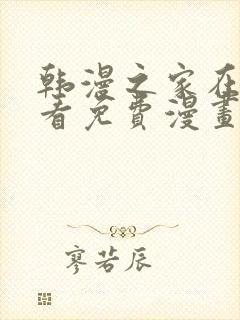 韩漫之家在
看免费漫畫
廖若辰